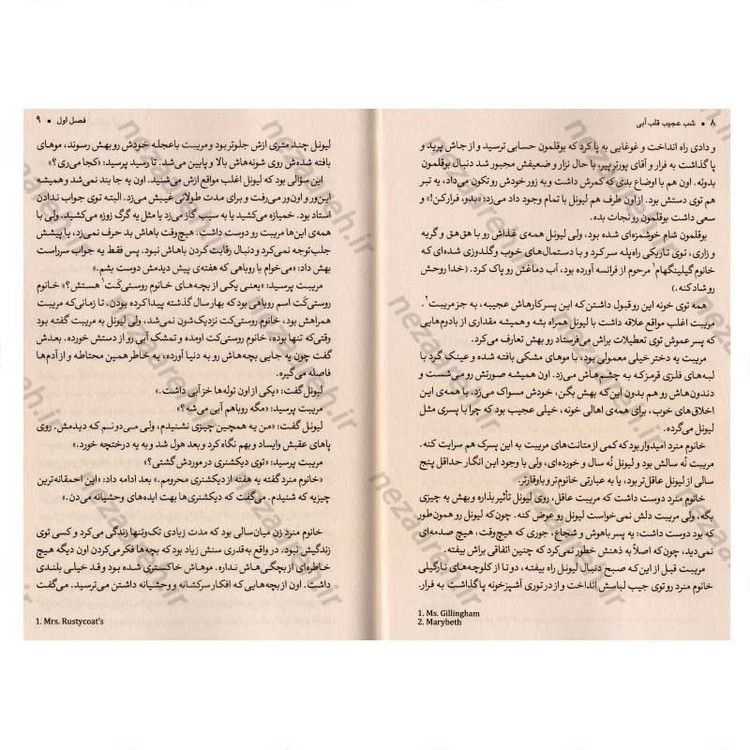 ۸ ■ شب عجیب قلب آبی
و دادی راه انداخت و غوغایی به پا کرد که بوقلمون حسابی ترسید و از جاش پرید و
پا گذاشت به فرار و آقای پورتر پیر، با حال نزار و ضعیفش مجبور شد دنبال بوقلمون
بدوئه. اون هم با اوضاع بدی که کمرش داشت و به زور خودش رو تکون می‌داد، یه تبر
هم توی دستش بود. از اون طرف هم لیونل با تمام وجود داد می‌زد: «بدو، فرار کن!» و
سعی داشت بوقلمون رو نجات بده.
بوقلمون شام خوشمزه‌ای شده بود، ولی لیونل همه‌ی غذاش رو با هق‌هق و گریه
و زاری، توی تاریکی راه‌پله سر کرد و با دستمال‌های خوب و گلدوزی شده‌ای که
خانوم گیلینگهام¹ مرحوم از فرانسه آورده بود، آب دماغش رو پاک کرد. (خدا روحش
رو شاد کنه.)
همه توی خونه این رو قبول داشتن که این پسر کارهاش عجیبه، به جز مریبت².
مریبت اغلب مواقع علاقه داشت با لیونل همراه بشه و همیشه مقداری از بادوم‌هایی
که پسرعموش توی تعطیلات براش می‌فرستاد رو بهش تعارف می‌کرد.
مریبت یه دختر خیلی معمولی بود، با موهای مشکی بافته شده و عینکی گرد با
لبه‌های فلزی قرمز که به چشم‌هاش می‌زد. اون همیشه صورتش رو می‌شست و
دندون‌هاش رو هم بدون این‌که بهش بگن، خودش مسواک می‌زد. با همه‌ی این
اخلاق‌های خوب، برای همه‌ی اهالی خونه، خیلی عجیب بود که چرا با پسری مثل
لیونل می‌گرده.
خانوم منرد امیدوار بود که کمی از متانت‌های مریبت به این پسرک هم سرایت کنه.
مریبت نُه سالش بود و لیونل نُه سال و خورده‌ای، ولی با وجود این انگار حداقل پنج
سالی از لیونل عاقل‌تر بود، یا به عبارتی خانوم‌تر و باوقارتر.
خانوم منرد دوست داشت که مریبت عاقل، روی لیونل تأثیر بذاره و بهش یه چیزی
بگه، ولی مریبت دلش نمی‌خواست لیونل رو عوض کنه. چون‌که لیونل رو همون‌طور
که بود دوست داشت: یه پسر باهوش و شجاع، جوری که هیچ‌وقت، هیچ صدمه‌ای
نمی‌دید، چون‌که اصلاً به ذهنش خطور نمی‌کرد که چنین اتفاقی براش بیفته.
مریبت قبل از این‌که صبح دنبال لیونل راه بیفته، دو تا از کلوچه‌های نارگیلی
خانوم منرد رو توی جیب لباسش انداخت و از در توری آشپزخونه پا گذاشت به فرار.
1. Ms. Gillingham
2. Marybeth
فصل اول ■ ۹
لیونل چند متری ازش جلوتر بود و مریبت با عجله خودش رو بهش رسوند، موهای
بافته شده‌ش روی شونه‌هاش بالا و پایین می‌شد. تا رسید پرسید: «کجا می‌ری؟»
این سؤالی بود که لیونل اغلب مواقع ازش می‌شنید. اون یه جا بند نمی‌شد و همیشه
این‌ور و اون‌ور می‌رفت و برای مدت طولانی غیبش می‌زد. البته توی جواب ندادن
استاد بود. خمیازه می‌کشید یا به سیب گاز می‌زد یا مثل یه گرگ زوزه می‌کشید. ولی با
همه‌ی این‌ها مریبت رو دوست داشت. هیچ‌وقت باهاش بد حرف نمی‌زد، یا پیشش
جلب‌توجه نمی‌کرد و دنبال رقابت کردن باهاش نبود. پس فقط یه جواب سرراست
بهش داد: «می‌خوام با روباهی که هفته‌ی پیش دیدمش دوست بشم.»
مریبت پرسید: «یعنی یکی از بچه‌های خانوم روستی‌کُت¹ هستش؟» خانوم
روستی‌کُت اسم روباهی بود که بهار سال گذشته پیدا کرده بودن. تا زمانی‌که مریبت
همراهش بود، خانوم روستی‌کت نزدیک‌شون نمی‌شد، ولی لیونل به مریبت گفته بود
وقتی‌که تنها بوده، خانوم روستی‌کت اومده و تمشک آبی رو از دستش خورده. بعدش
گفت چون یه جایی بچه‌هاش رو به دنیا آورده، یه خاطر همین محتاطه و از آدم‌ها
فاصله می‌گیره.
لیونل گفت: «یکی از اون توله‌ها خز آبی داشت.»
مریبت پرسید: «مگه روباهم آبی می‌شه؟»
لیونل گفت: «من یه همچین چیزی نشنیدم، ولی می‌دونم که دیدمش. روی
پاهای عقبش وایساد و بهم نگاه کرد و بعد هول شد و به یه درختچه خورد.»
مریبت پرسید: «توی دیکشنری در موردش گشتی؟»
«خانوم منرد گفته یه هفته از دیکشنری محرومم.» بعد ادامه داد: «این احمقانه‌ترین
چیزیه که شنیدم. می‌گفت که دیکشنری‌ها بهت ایده‌های وحشیانه می‌دن.»
خانوم منرد زن میان‌سالی بود که مدت زیادی تک‌وتنها زندگی می‌کرد و کسی توی
زندگیش نبود. در واقع به‌قدری سنش زیاد بود که بچه‌ها فکر می‌کردن اون دیگه هیچ
خاطره‌ای از بچگی‌هاش نداره. موهاش خاکستری شده بود و قد خیلی بلندی
داشت. اون از بچه‌هایی که افکار سرکشانه و وحشیانه داشتن می‌ترسید. می‌گفت
1. Mrs. Rustycoat's
nezareheh.ir